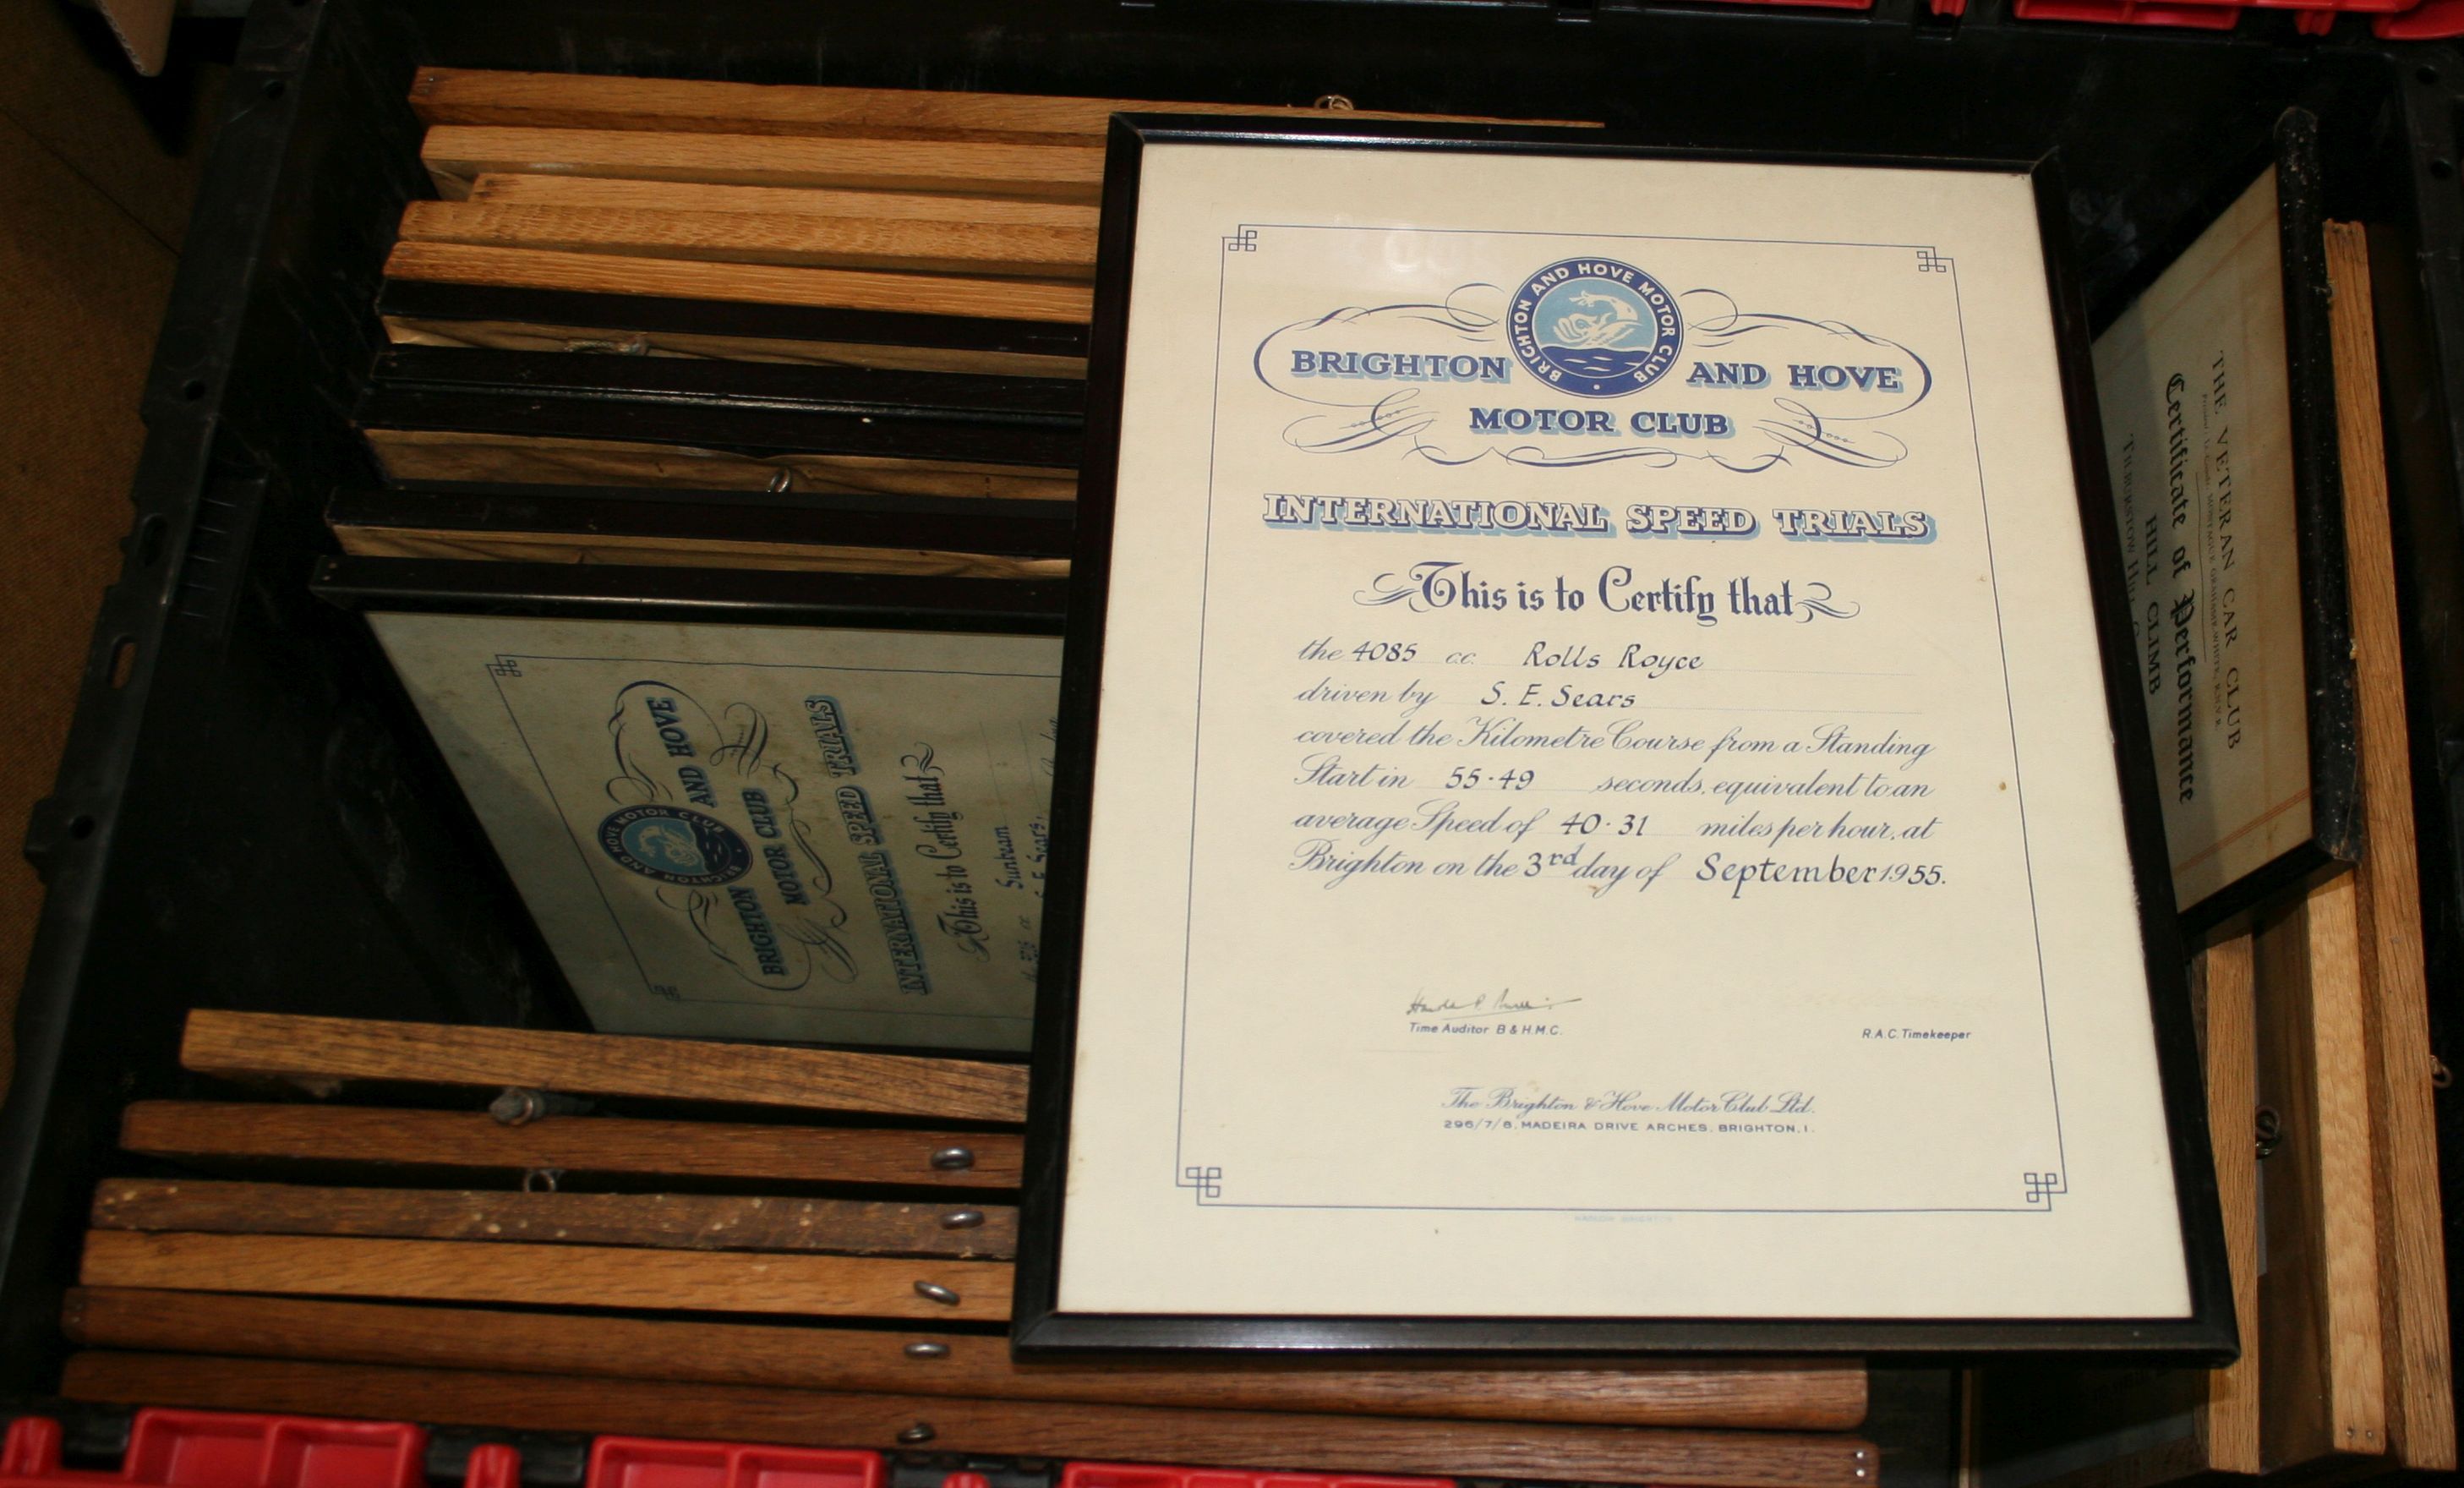 BRIGHTON AND HOVE MOTOR CLUB
BRIGHTON AND HOVE
MOTOR CLUB
INTERNATIONAL SPEED TRIALS
This is to Certify that
the 4085 cc. Rolls Royce
driven by S. E. Sears
covered the Kilometre Course from a Standing
Start in 55·49 seconds, equivalent to an
average Speed of 40·31 miles per hour, at
Brighton on the 3rd day of September 1955.
Time Auditor B & H.M.C.
R.A.C. Timekeeper
The Brighton & Hove Motor Club Ltd.
296/7/8, MADEIRA DRIVE ARCHES, BRIGHTON, 1.
BRIGHTON AND HOVE MOTOR CLUB
BRIGHTON AND HOVE
MOTOR CLUB
INTERNATIONAL SPEED TRIALS
This is to Certify that
Sunbeam
S. E. Sears,
THE VETERAN CAR CLUB
Certificate of Performance
HILL CLIMB